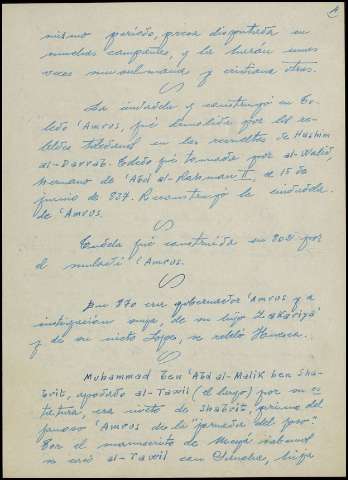 mismo período, presa disputada en
muchas campañas, y la harán unas
veces musulmana y cristiana otras.
La ciudadela que construyó en To-
ledo 'Amrus, fué demolida por los re-
beldes toledanos en las revueltas de Hashim
al-Darrab. Toledo fué tomada por al-Walid,
hermano de 'Abd al-Rahman II, a 15 de
junio de 837. Reconstruyó la ciudadela
de 'Amrus.
Tudela fué construida en 802 por
el muladí 'Amrus.
En 870 era gobernador 'Amrus y a
instigación suya, de su hijo Zakariya
y de su nieto Lope, se rebeló Huesca.
Muhammad ben 'Abd al-Malik ben Sha-
brit, apodado al-Tawil (el largo) por su es-
tatura, era nieto de Shabrit, primo del
famoso 'Amrus de la "jornada del foso".
Por el manuscrito de Meyá sabemos
se casó al-Tawil con Sancha, hija